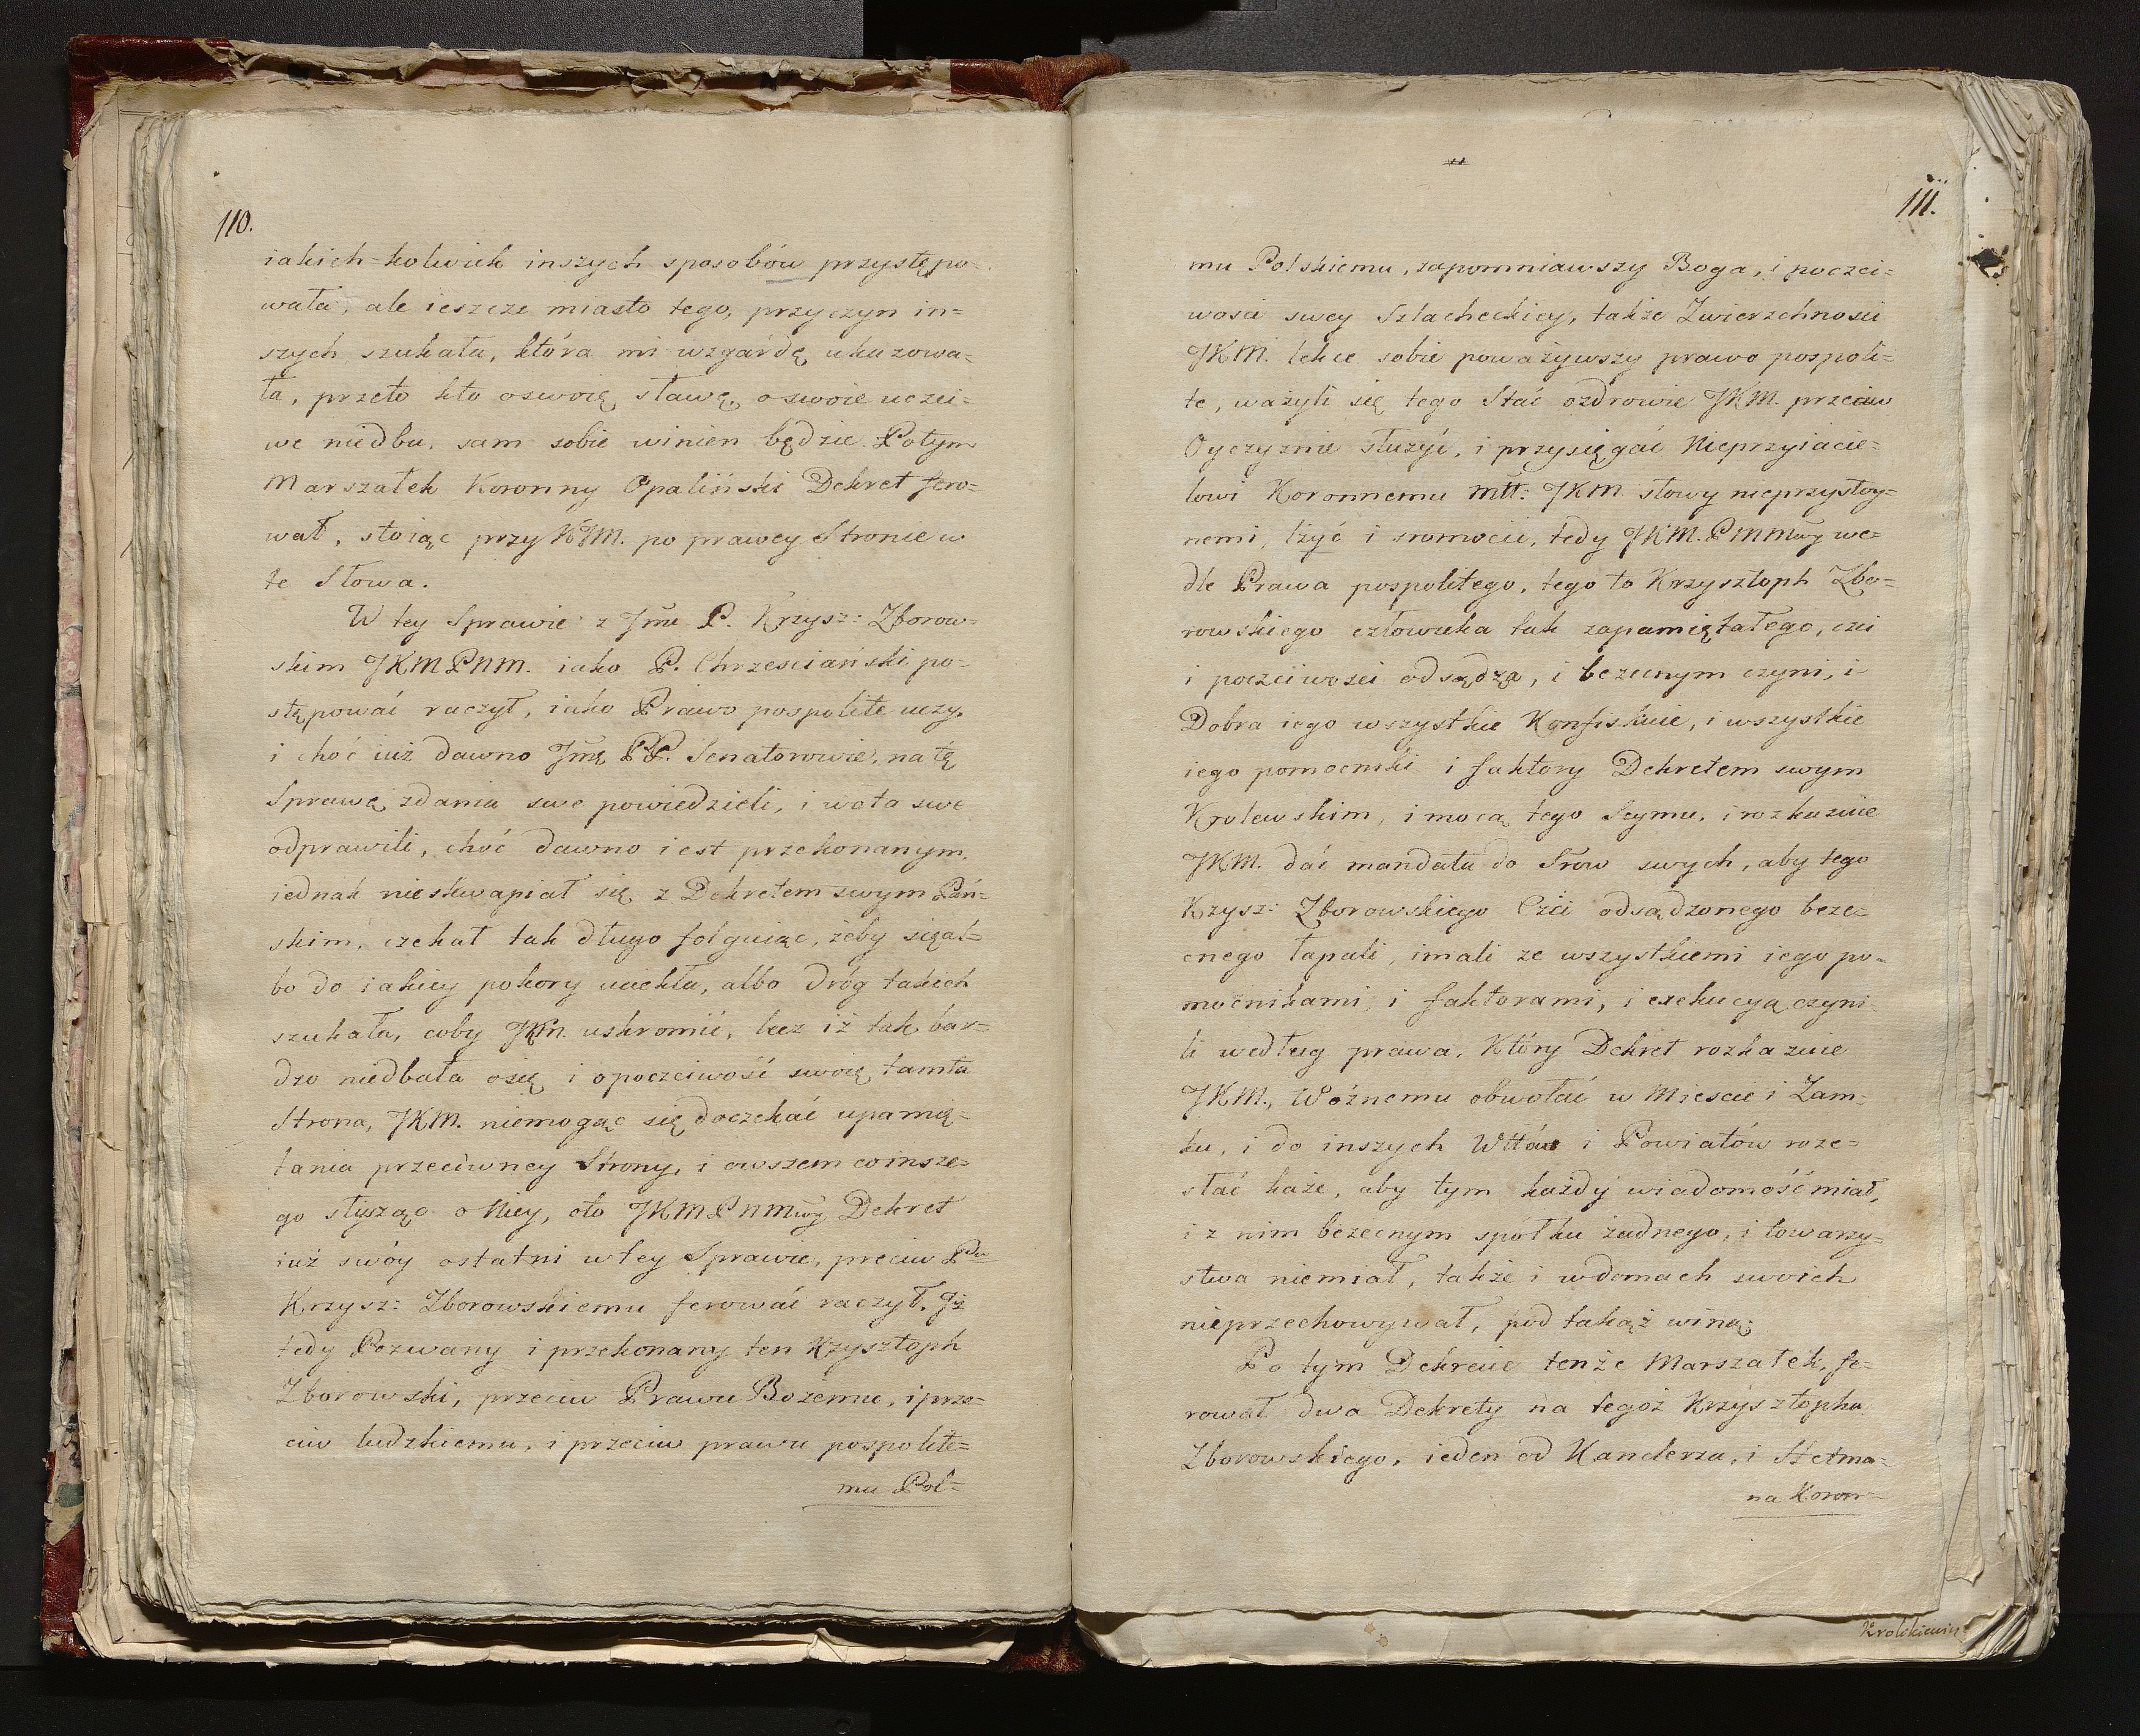 110.
iakich=kolwiek inszych sposobów przystępo=
wała, ale ieszcze miasto tego, przyczyn in=
szych szukała, która mi wzgardę ukazowa=
ła, przeto kto o swoię sławę, o swoie uczci=
we niedba, sam sobie winien będzie. Potym
Marszałek Koronny Opaliński Dekret fero=
wał, stoiąc przy KJM. po prawey Stronie w
te Słowa.
W tey Sprawie z Jmć P. Krzysz: Zborow=
skim JKMPNM. iako P. Chrzesciański po=
stępować raczył, iako Prawo pospolite uczy,
i choć iuż dawno Jmę PP. Senatorowie, na tę
Sprawę zdania swe powiedzieli, i wota swe
odprawili, choć dawno iest przekonanym,
iednak nieskwapiał się z Dekretem swym Pań=
skim, czekał tak długo folguiąc, żeby się al=
bo do iakiey pokory uciekła, albo dróg takich
szukała, coby JKM. uskromić, lecz iż tak bar=
dzo niedbała o się i o poczciwość swoię tamta
Strona, JKM. niemogąc się doczekać upamię=
tania przeciwney Strony, i owszem co insze=
go słysząc o Niey, oto JKMPNMwy Dekret
iuż swóy ostatni w tey Sprawie, preciw Pu
Krzysz: Zborowskiemu ferować raczył. Iż
tedy Pozwany i przekonany ten Krzysztoph
Zborowski, przeciw Prawu Bożemu, i prze=
ciw ludzkiemu, i przeciw prawu pospolite=
mu Pol=
111.
mu Polskiemu, zapomniawszy Boga, i poczci=
wosci swey Szlacheckiey, także Zwierzchnosci
JKM. lekce sobie poważywszy prawo pospoli=
te, ważyli się tego Stać o zdrowie JKM. przeciw
Oyczyznie służyć, i przysięgać Nieprzyiacie=
lowi Koronnemu Mtt: JKM słowy nieprzystoy=
nemi, lżyć i sromocić, tedy JKM. PMMwy we=
dle Prawa pospolitego, tego to Krzysztoph Zbo=
rowskiego człowieka tak zapamiętałego, czci
i poczciwosci odsądza, i bezecnym czyni, i
Dobra iego wszystkie Konfiskuie, i wszystkie
iego pomocniki i faktory Dekretem swym
Krolewskim, i mocą tego Seymu, i rozkazuie
JKM. dać mandata do Srow swych, aby tego
Krzysz: Zborowskiego Czci odsądzonego beze=
cnego łapali, imali ze wszystkiemi iego po=
mocnikami, i faktorami, i exekucyą czyni
li według prawa, Który Dekret rozkazuie
JKM., Woźnemu obwołać w Miescie i Zam=
ku, i do inszych Wttów i Powiatów roze=
słać każe, aby tym każdy wiadomość miał,
i z nim bezecnym spółku żadnego, i towarzy=
stwa niemiał, także i w domach swoich
nieprzechowywał, pod takąż winą;
Po tym Dekrecie tenże Marszałek, fe=
rował dwa Dekrety na tegoż Krzysztopha
Zborowskiego, ieden od Kanclerza, i Hetma=
na Koron=
Krolikiewicz